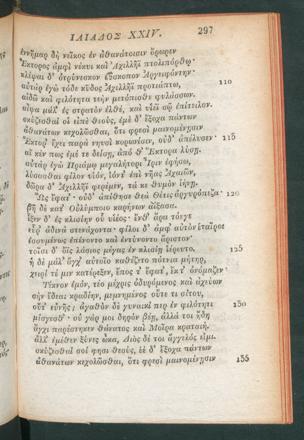 ΙΛΙΑΔΟΣ XXIV. 297
ἐννῆμαρ δὴ νεῖκος ἐν ἀθανάτοισιν ὄρωρεν
Ἕκτορος ἀμφὶ νέκυι καὶ Ἀχιλλῆϊ πτολιπόρθῳ·
κλέψαι δ' ὀτρύνεσκον ἐΰσκοπον Ἀργειφόντην·
αὐτὰρ ἐγὼ τόδε κῦδος Ἀχιλλῆϊ προτιάπτω, 110
αἰδῶ καὶ φιλότητα τεὴν μετόπισθε φυλάσσων.
αἶψα μάλ' ἐς στρατὸν ἐλθὲ, καὶ υἱέϊ σῷ ἐπίτειλον.
σκύζεσθαί οἱ εἰπὲ θεοὺς, ἐμὲ δ' ἔξοχα πάντων
ἀθανάτων κεχολῶσθαι, ὅτι φρεσὶ μαινομένῃσιν
Ἕκτορ' ἔχει παρὰ νηυσὶ κορωνίσιν, οὐδ' ἀπέλυσεν· 115
αἴ κέν πως ἐμέ τε δείσῃ, ἀπό θ' Ἕκτορα λύσῃ.
αὐτὰρ ἐγὼ Πριάμῳ μεγαλήτορι Ἶριν ἐφήσω,
λύσασθαι φίλον υἱὸν, ἰόντ' ἐπὶ νῆας Ἀχαιῶν,
δῶρα δ' Ἀχιλλῆϊ φερέμεν, τά κε θυμὸν ἰήνῃ.
Ὣς ἔφατ'· οὐδ' ἀπίθησε θεὰ Θέτις ἀργυρόπεζα· 120
βῆ δὲ κατ' Οὐλύμποιο καρήνων ἀΐξασα.
ἷξεν δ' ἐς κλισίην οὗ υἱέος· ἔνθ' ἄρα τόνγε
εὗρ' ἁδινὰ στενάχοντα· φίλοι δ' ἀμφ' αὐτὸν ἑταῖροι
ἐσσυμένως ἐπένοντο καὶ ἐντύνοντο ἄριστον·
τοῖσι δ' ὄϊς λάσιος μέγας ἐν κλισίῃ ἱέρευτο. 125
ἡ δὲ μάλ' ἄγχ' αὐτοῖο καθέζετο πότνια μήτηρ,
χειρί τέ μιν κατέρεξεν, ἔπος τ' ἔφατ', ἔκ τ' ὀνόμαζεν·
Τέκνον ἐμὸν, τέο μέχρις ὀδυρόμενος καὶ ἀχεύων
σὴν ἔδεαι κραδίην, μεμνημένος οὔτε τι σίτου,
οὔτ' εὐνῆς; ἀγαθὸν δὲ γυναικί περ ἐν φιλότητι 130
μίσγεσθ'· οὐ γάρ μοι δηρὸν βέῃ, ἀλλά τοι ἤδη
ἄγχι παρέστηκεν θάνατος καὶ Μοῖρα κραταιή.
ἀλλ' ἐμέθεν ξύνες ὦκα, Διὸς δέ τοι ἄγγελός εἰμι.
σκύζεσθαί σοί φησι θεοὺς, ἑὲ δ' ἔξοχα πάντων
ἀθανάτων κεχολῶσθαι, ὅτι φρεσὶ μαινομένῃσιν 135